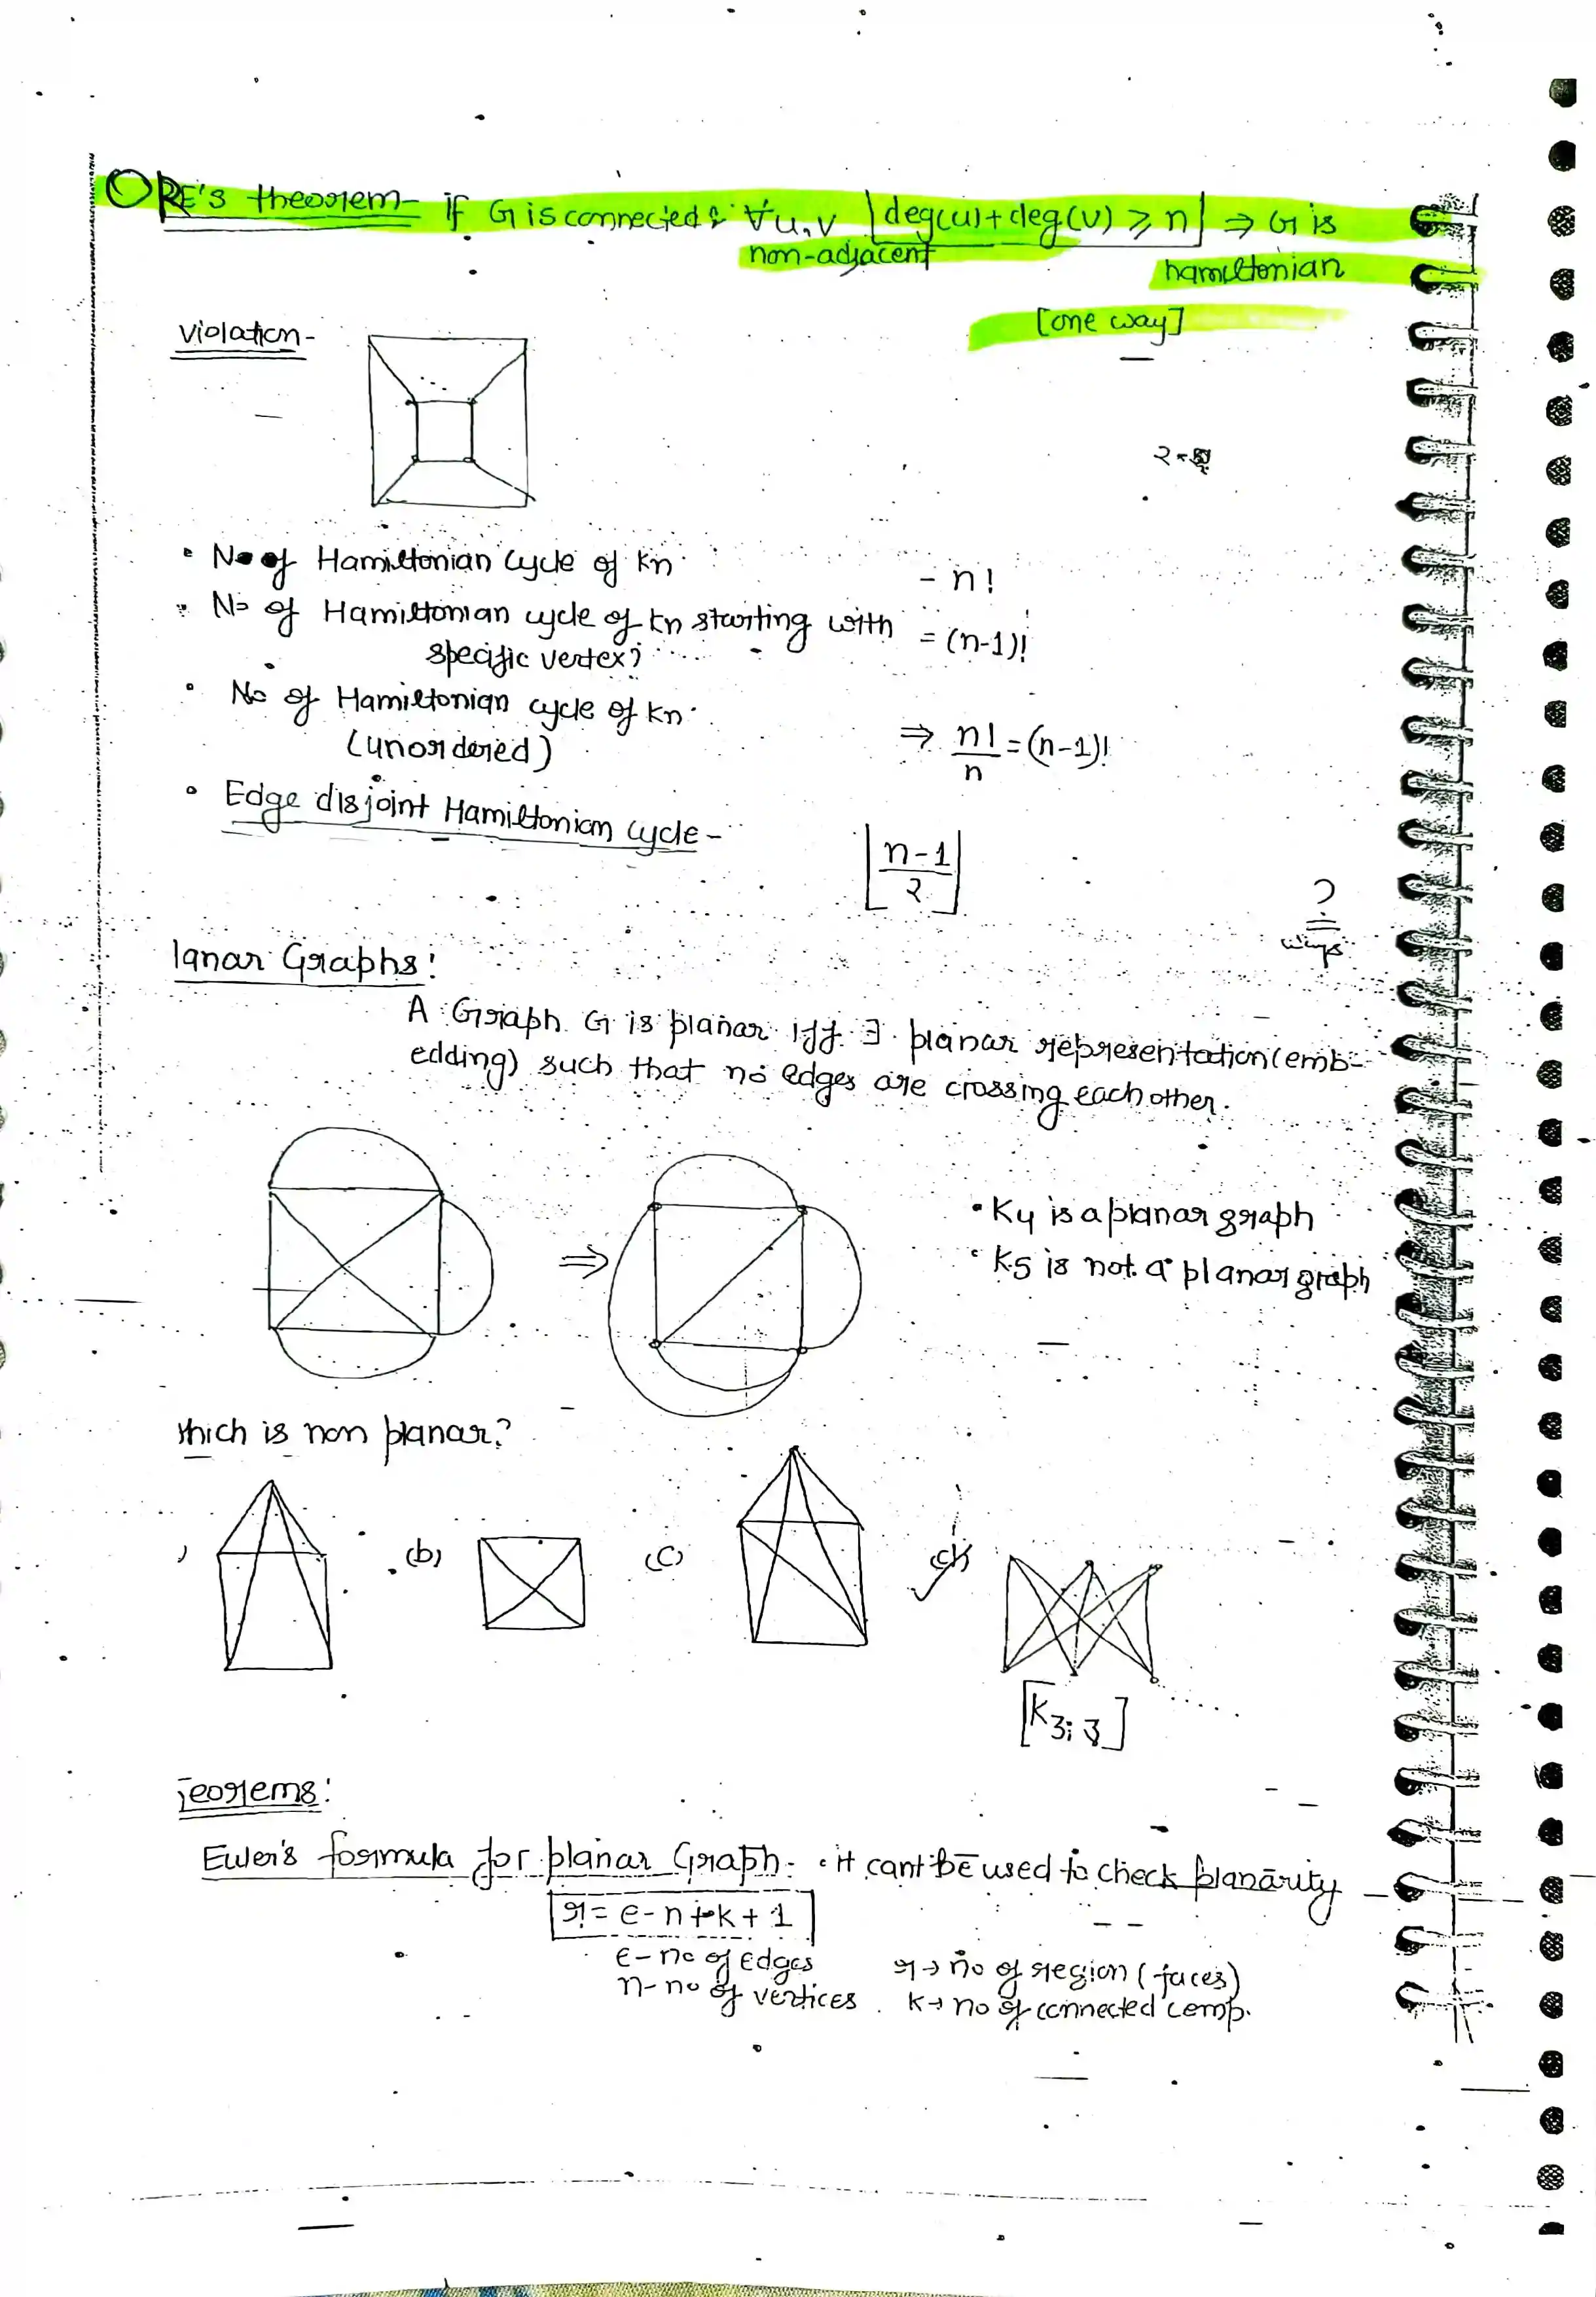 ORE's theorem- if G is connected & ∀u,v deg(u)+deg(v) ⩾ n ⇒ G is
non-adjacent hamiltonian
[one way]
Violation-
• No of Hamiltonian Cycle of Kn - n!
• No of Hamiltonian cycle of Kn starting with = (n-1)!
specific vertex?
• No of Hamiltonian cycle of Kn
(unordered) ⇒ n!/n = (n-1)!
• Edge disjoint Hamiltonian Cycle - ⌊(n-1)/2⌋
?
ways
lanar Graphs:
A Graph G is planar iff ∃ planar representation (emb-
edding) such that no edges are crossing each other.
⇒
• K4 is a planar graph
• K5 is not a planar graph
hich is non planar?
) (b) (c) (d)
[K3,3]
eorems:
Euler's formula for planar Graph- • it cant be used to check planarity
r = e-n+k+1
e- no of edges r → no of region (faces)
n- no of vertices k → no of connected comp.